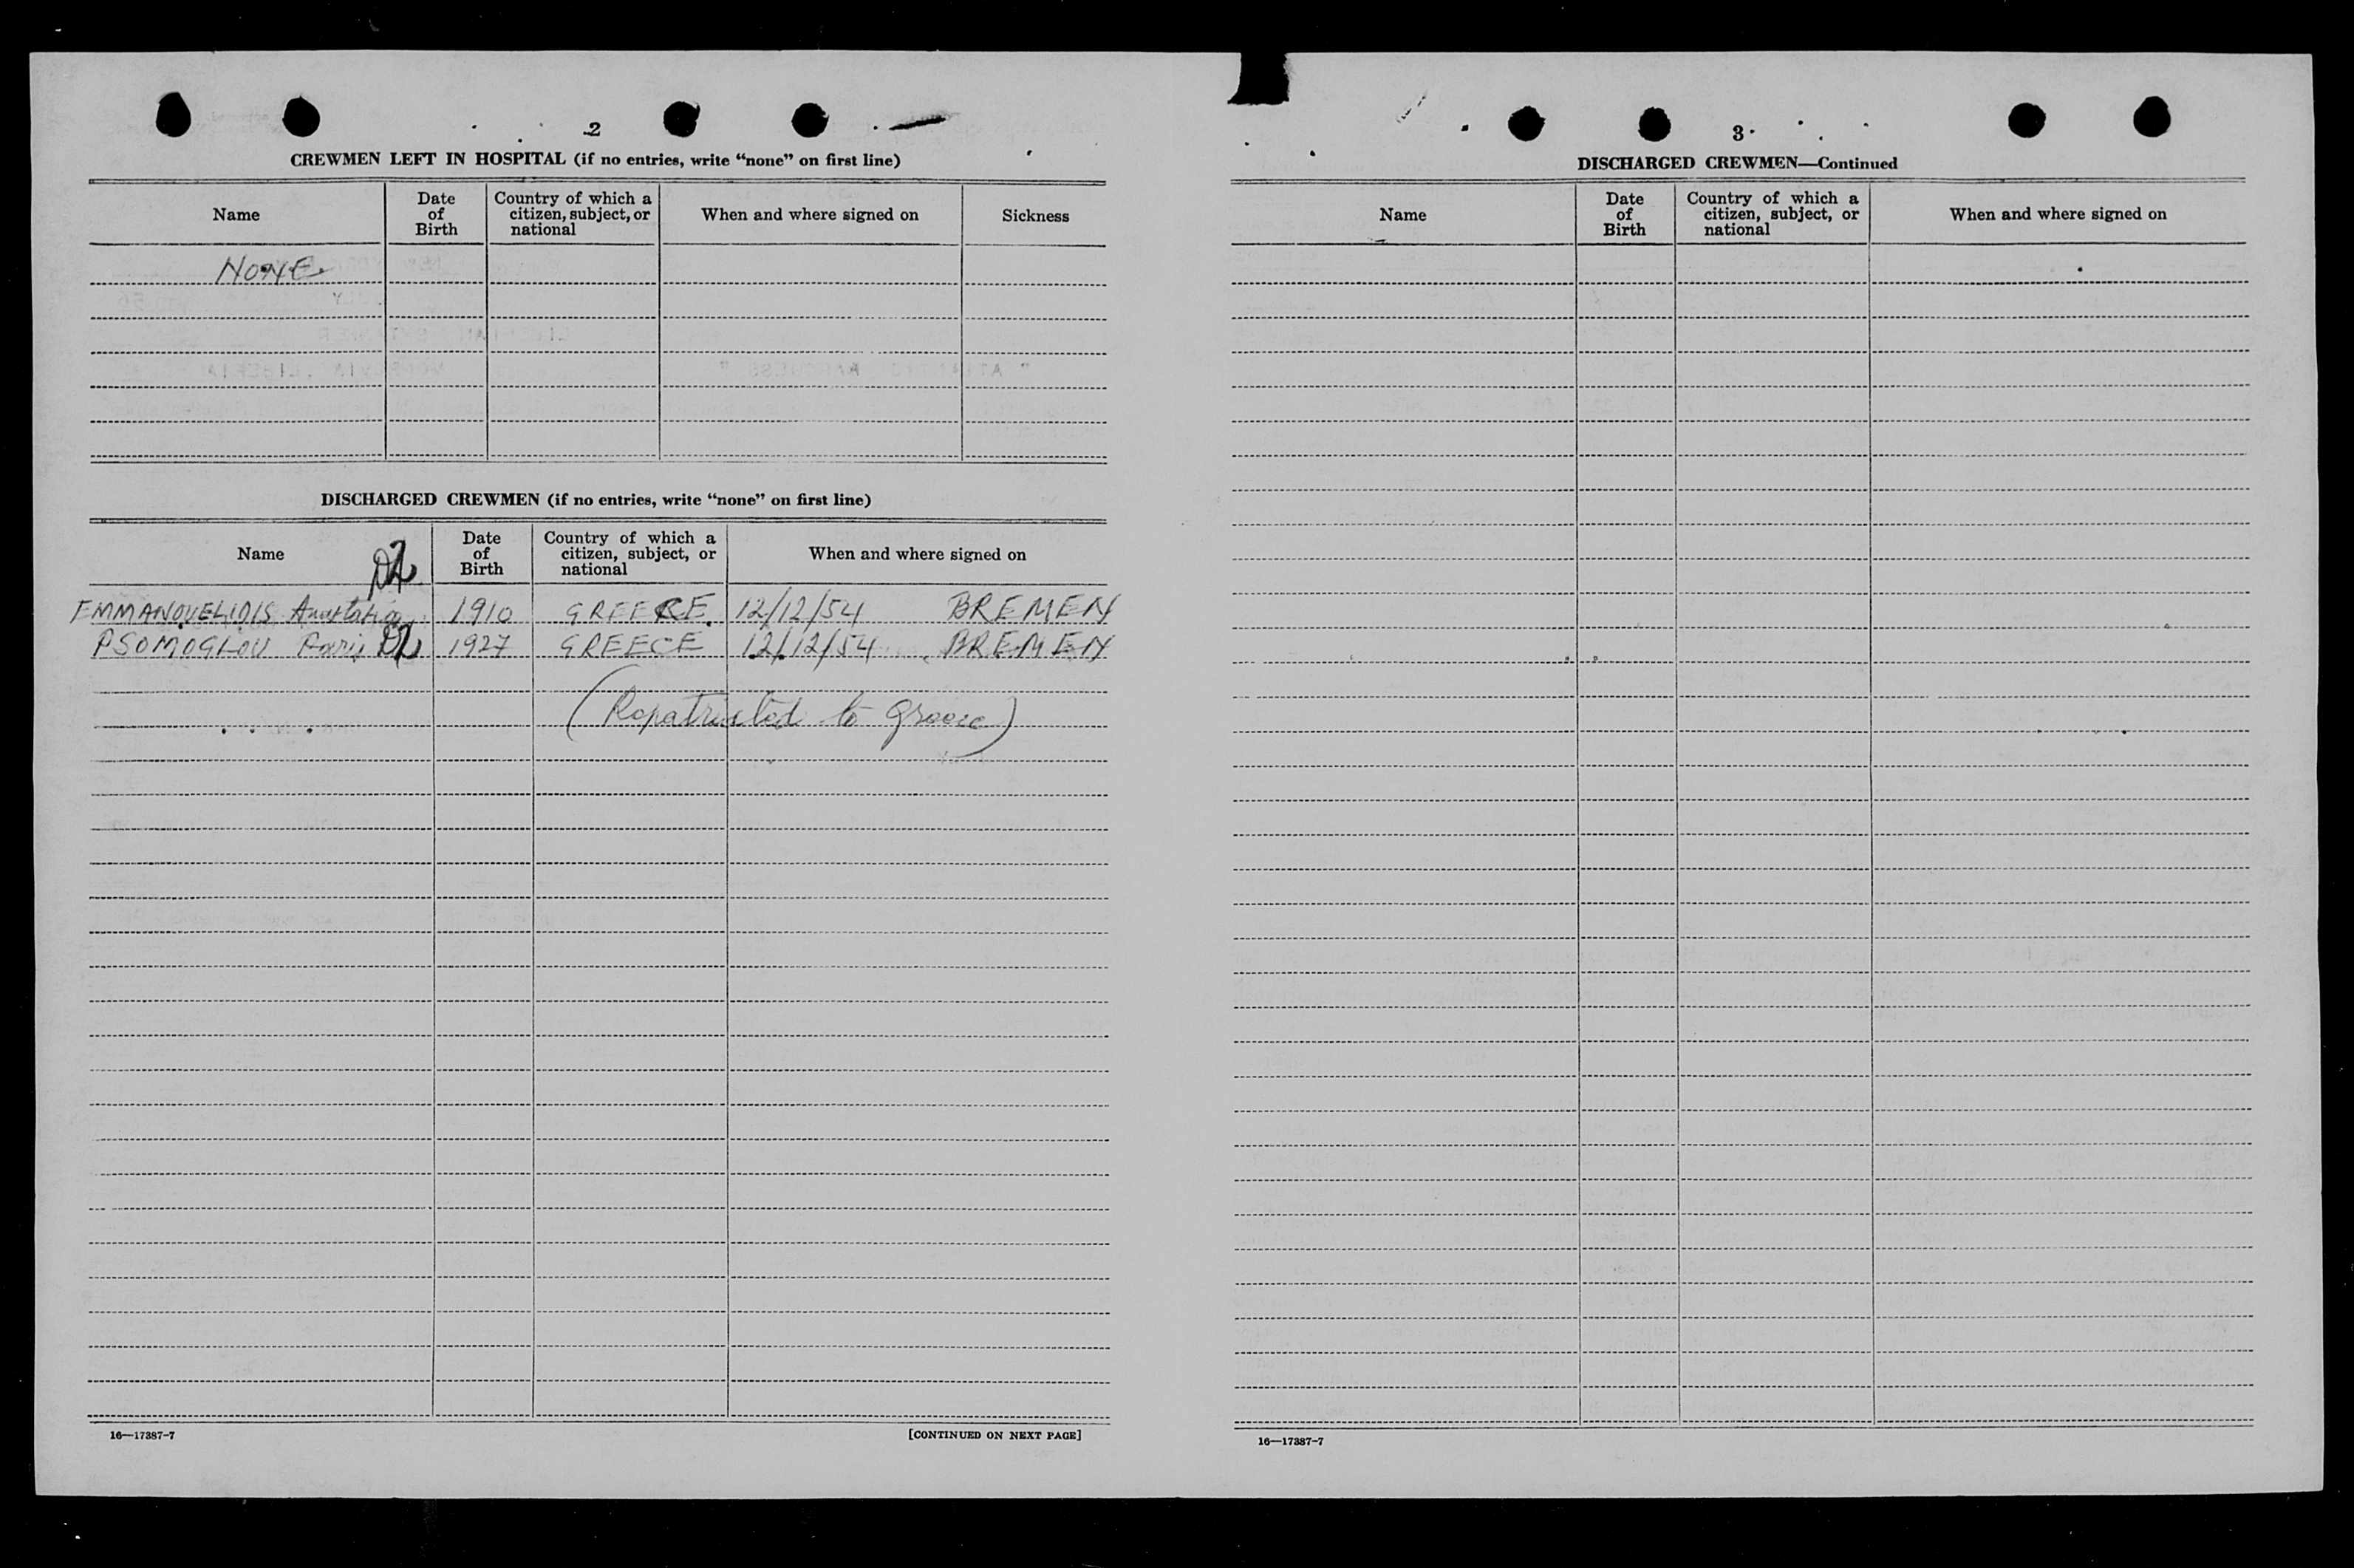 2
CREWMEN LEFT IN HOSPITAL (if no entries, write “none” on first line)
Name Date of Birth Country of which a citizen, subject, or national When and where signed on Sickness
NONE
DISCHARGED CREWMEN (if no entries, write “none” on first line)
Name Date of Birth Country of which a citizen, subject, or national When and where signed on
EMMANOUELIDIS 1910 GREECE 12/12/54 BREMEN
PSOMOGLOU 1927 GREECE 12/12/54 BREMEN
(Repatriated to Greece)
16—17387-7 [CONTINUED ON NEXT PAGE]
3
DISCHARGED CREWMEN—Continued
Name Date of Birth Country of which a citizen, subject, or national When and where signed on
16—17387-7